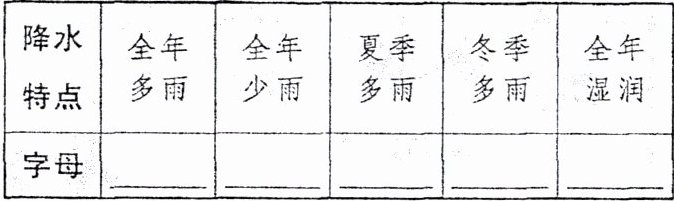 降水特点 全年多雨 全年少雨 夏季多雨 冬季多雨 全年湿润
字母